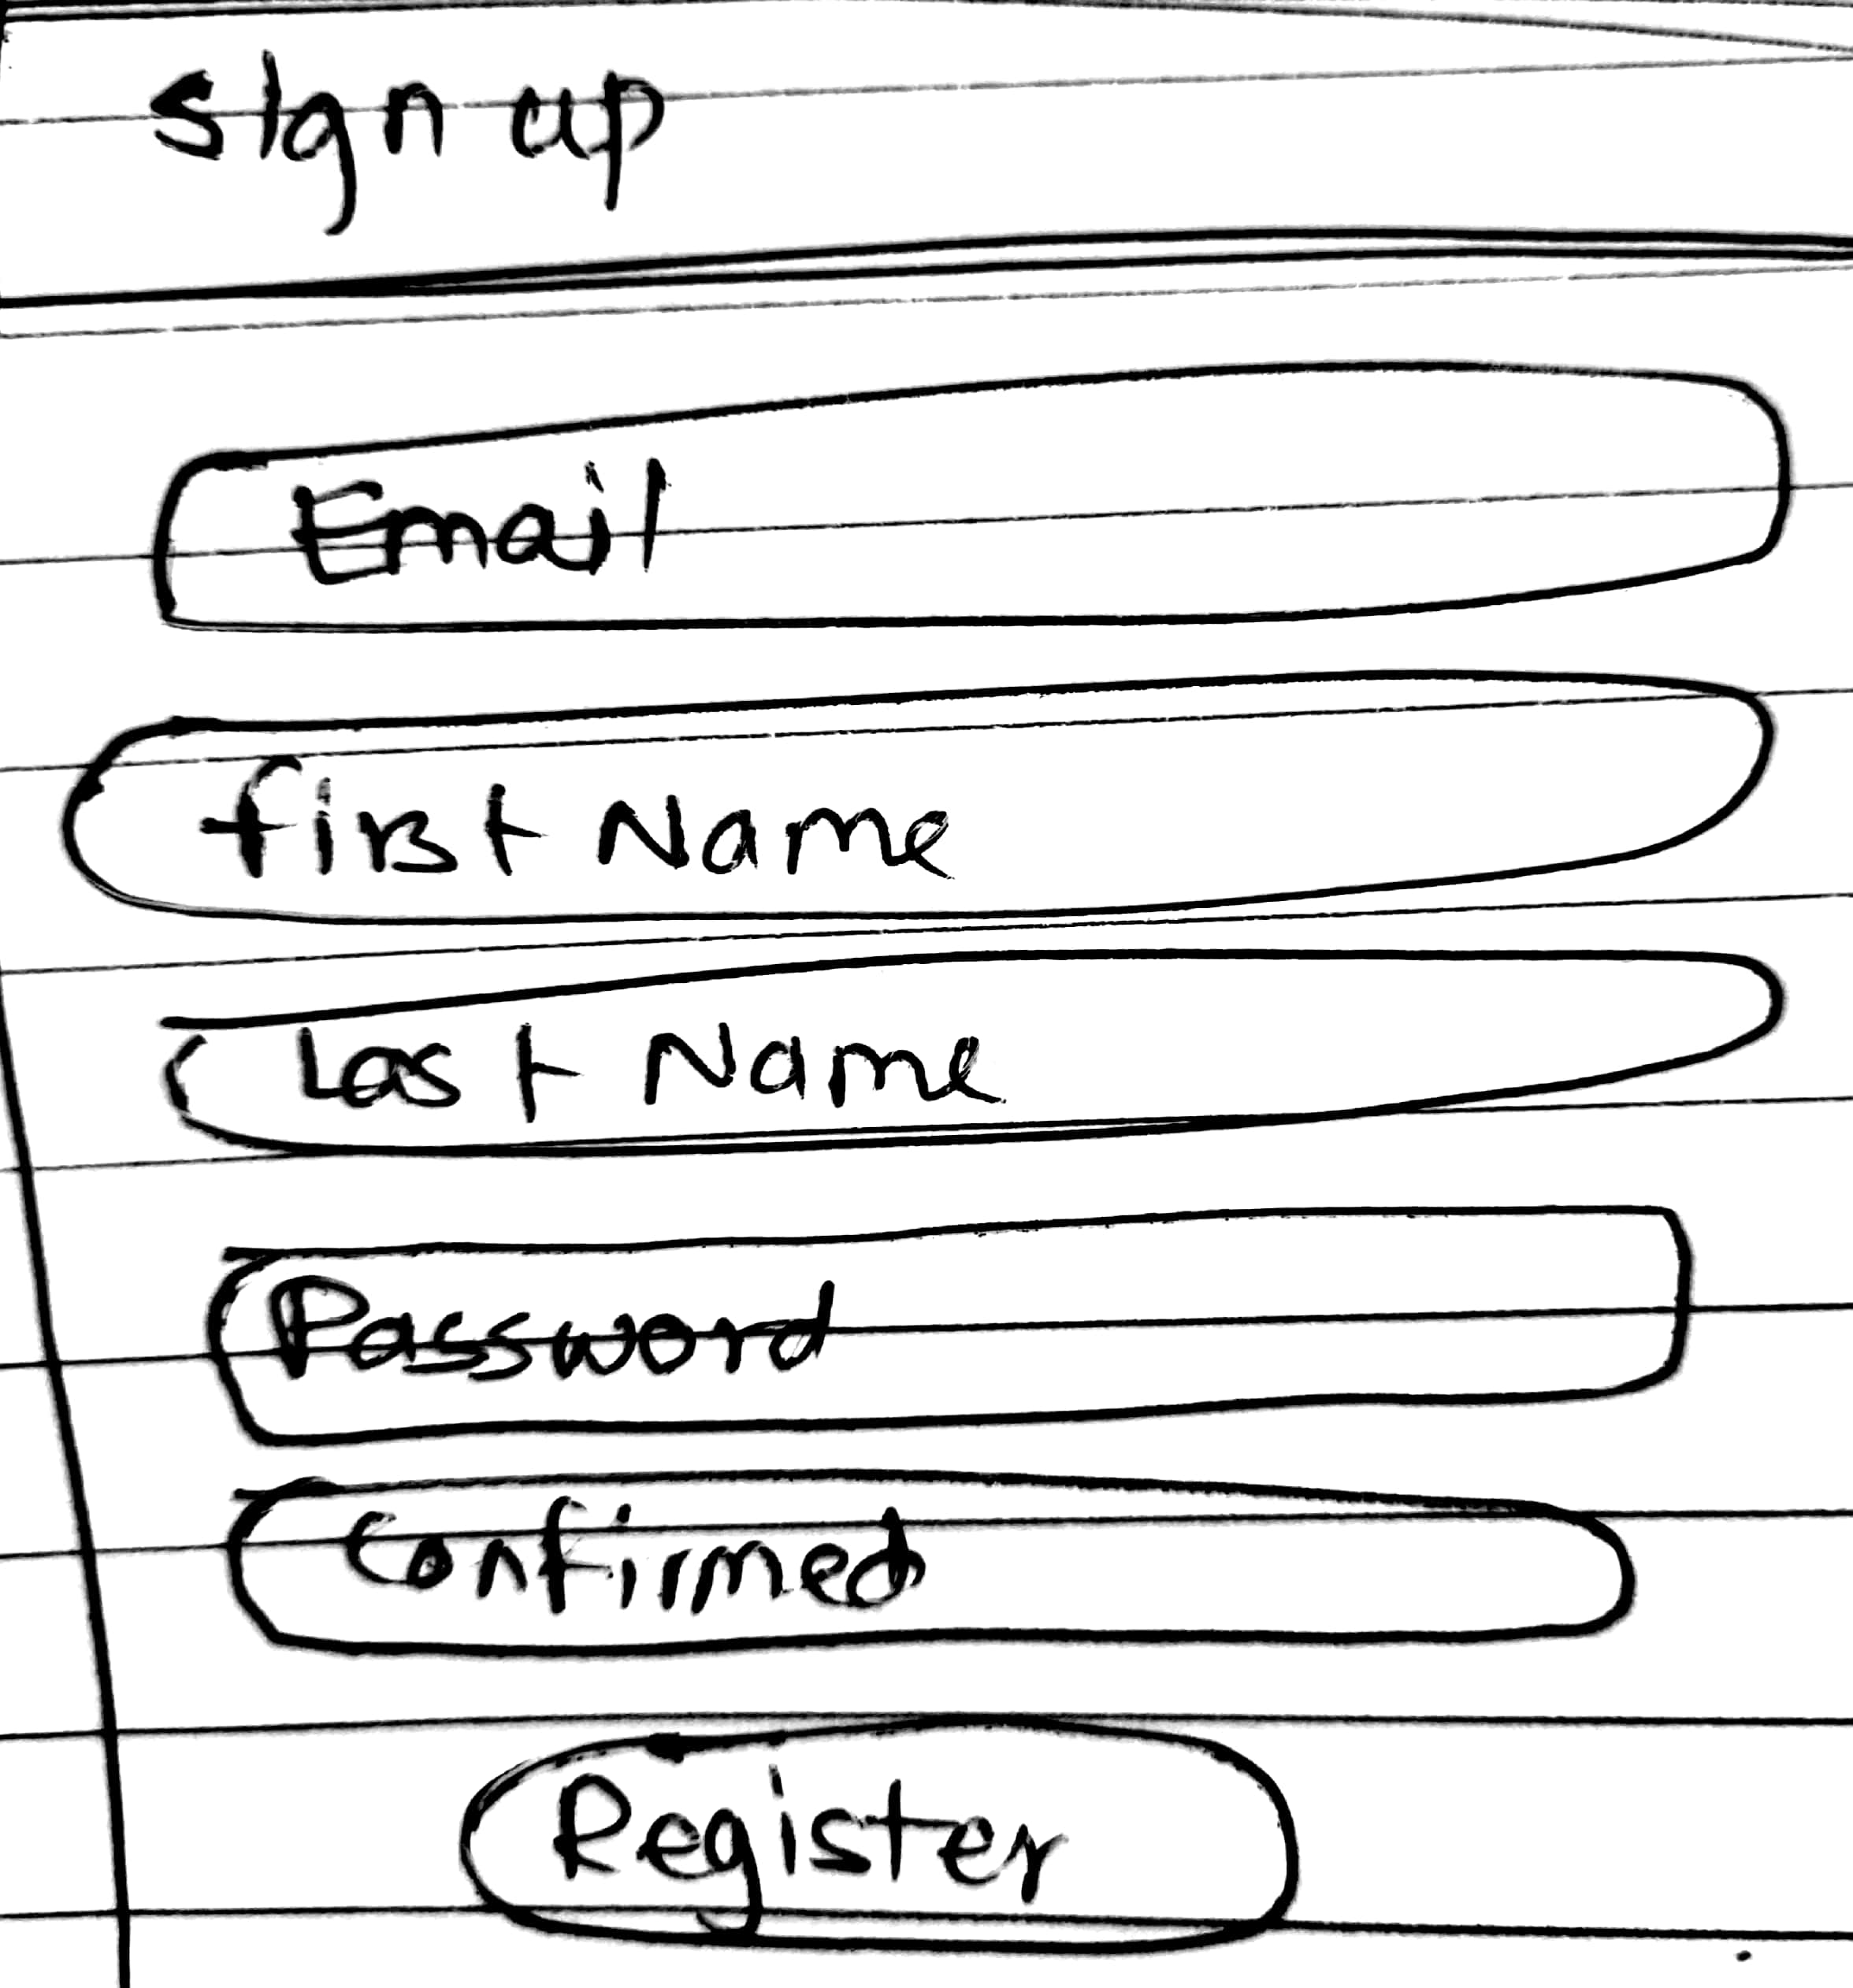 Sign up
Email
first Name
Last Name
Password
Confirmed
Register